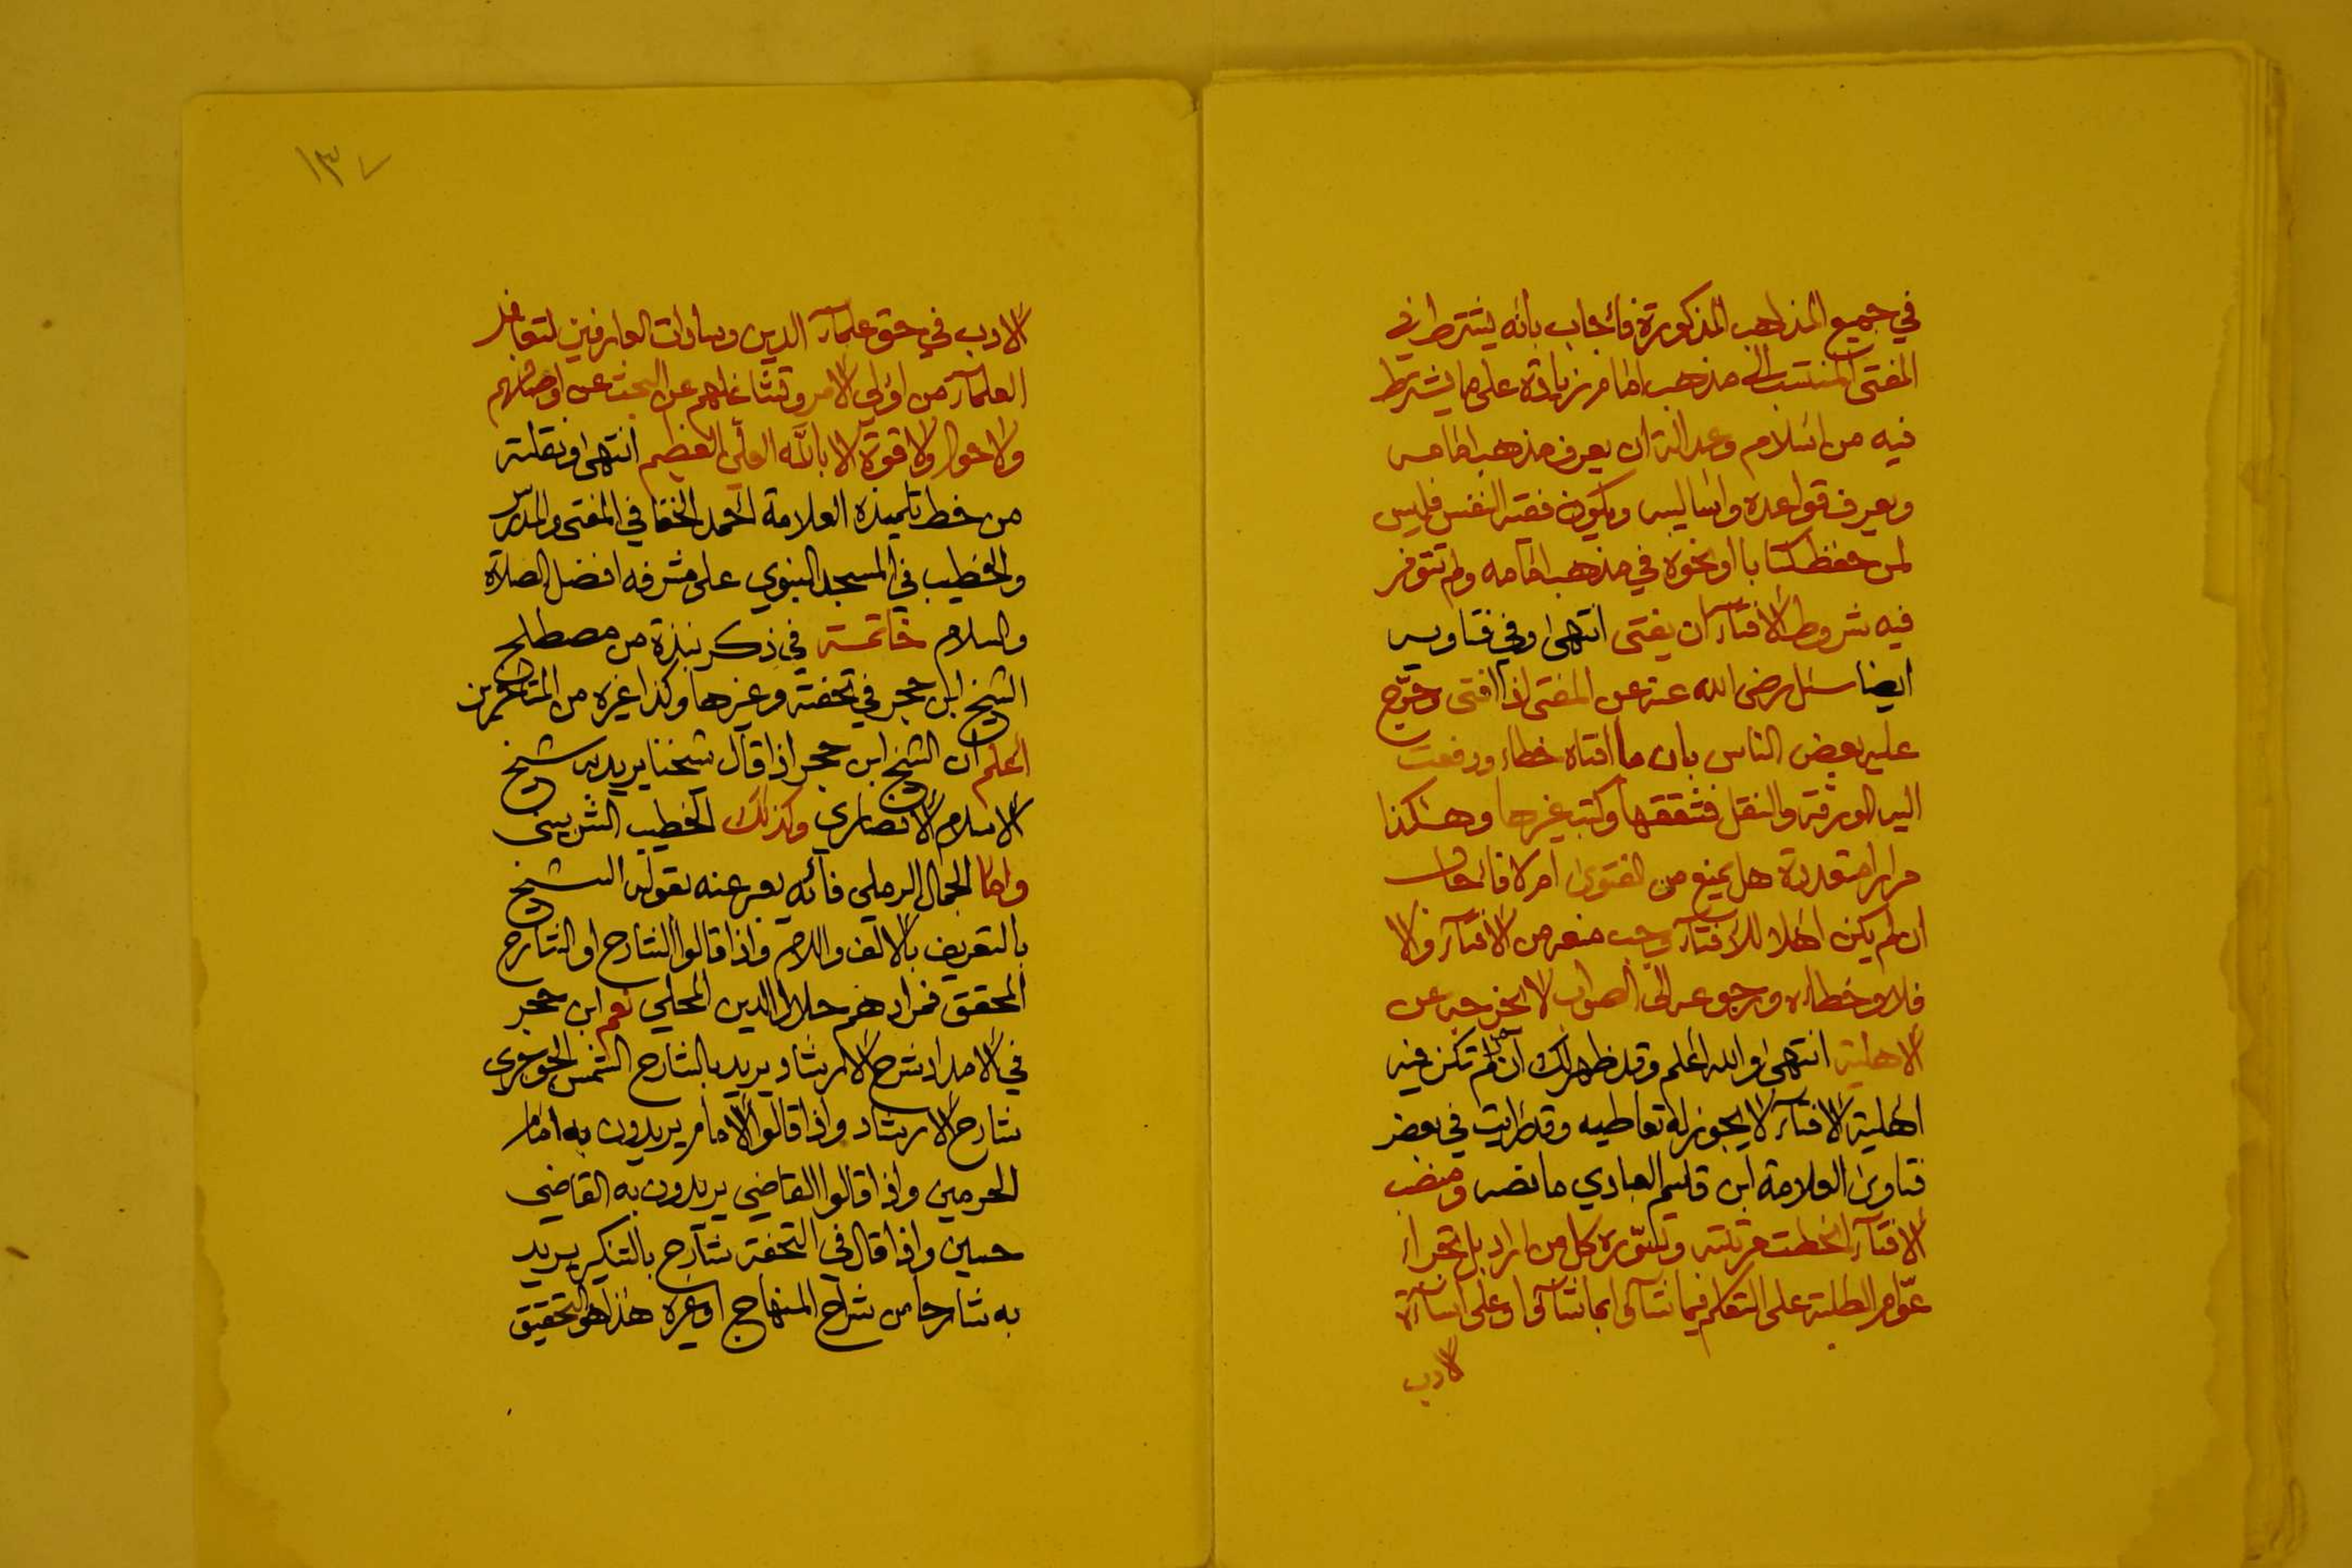 في جميع المذاهب المذكورة فأجاب بأنه يشترط في
المفتي المنتسب الى مذهب امام زيادة على ما يشترط
فيه من اسلام وعدالة ان يعرف مذهب امامه
ويعرف قواعده واساليبه ويكون فقيه النفس فليس
لمن حفظ كتابا او نحوه في مذهب امامه ولم تتوفر
فيه شروط الافتآء ان يفتى انتهى وفي فتاويه
ايضا سئل رضى الله عنه عن المفتى اذا افتى وخرّج
عليه بعض الناس بان ما افتاه خطاء ودفعت
اليه الورقة والنقل فشققها وكتب غيرها وهكذا
مرارا متعددة هل يمنع من الفتوى ام لا فأجاب
ان لم يكن اهلا للافتآء وجب منعه من الافتآء والا
فلا وخطاءه ورجوعه الى الصواب لا يخرجه عن
الاهلية انتهى والله اعلم وقد ظهر لك ان من لم تكن فيه
اهلية الافتآء لا يجوز له تعاطيه وقد رأيت في بعض
فتاوى العلامة ابن قاسم العبادي ما نصه ومنصب
الافتآء انحطت مرتبته وتسوّره كل من اراد بل تجراء
عوّام الطلبة على التكلم فيما شآؤا بما شآؤا وعلى اسآءة
الادب
١٣٧
الادب في حق علمآء الدين وسادات العارفين لتغافل
العلمآء من اولي الامر وتشاغلهم عن البحث عن
ولا حول ولا قوة الا بالله العلي العظيم انتهى ونقلته
من خط تلميذه العلامة احمد الخفافي المفتى والمدرس
والخطيب في المسجد النبوي على مشرفه افضل الصلاة
والسلام خاتمة في ذكر نبذة من مصطلح
الشيخ ابن حجر في تحفته وغيرها وكذا غيره من المتأخرين
اعلم ان الشيخ ابن حجر اذا قال شيخنا يريد به شيخ
الاسلام الانصاري وكذلك الخطيب الشربيني
واما الجمال الرملي فأنه يعبر عنه بقوله الشيخ
بالتعريف بالالف واللام واذا قالوا الشارح او الشارح
المحقق فمرادهم جلال الدين المحلي نعم ابن حجر
في الامداد شرح الارشاد يريد بالشارح الشمس الجوجري
شارح الارشاد واذا قالوا الامام يريدون به امام
الحرمين واذا قالوا القاضي يريدون به القاضي
حسين واذا قال في التحفة شارح بالتنكير يريد
به شارحا من شراح المنهاج او غيره هذا هو التحقيق